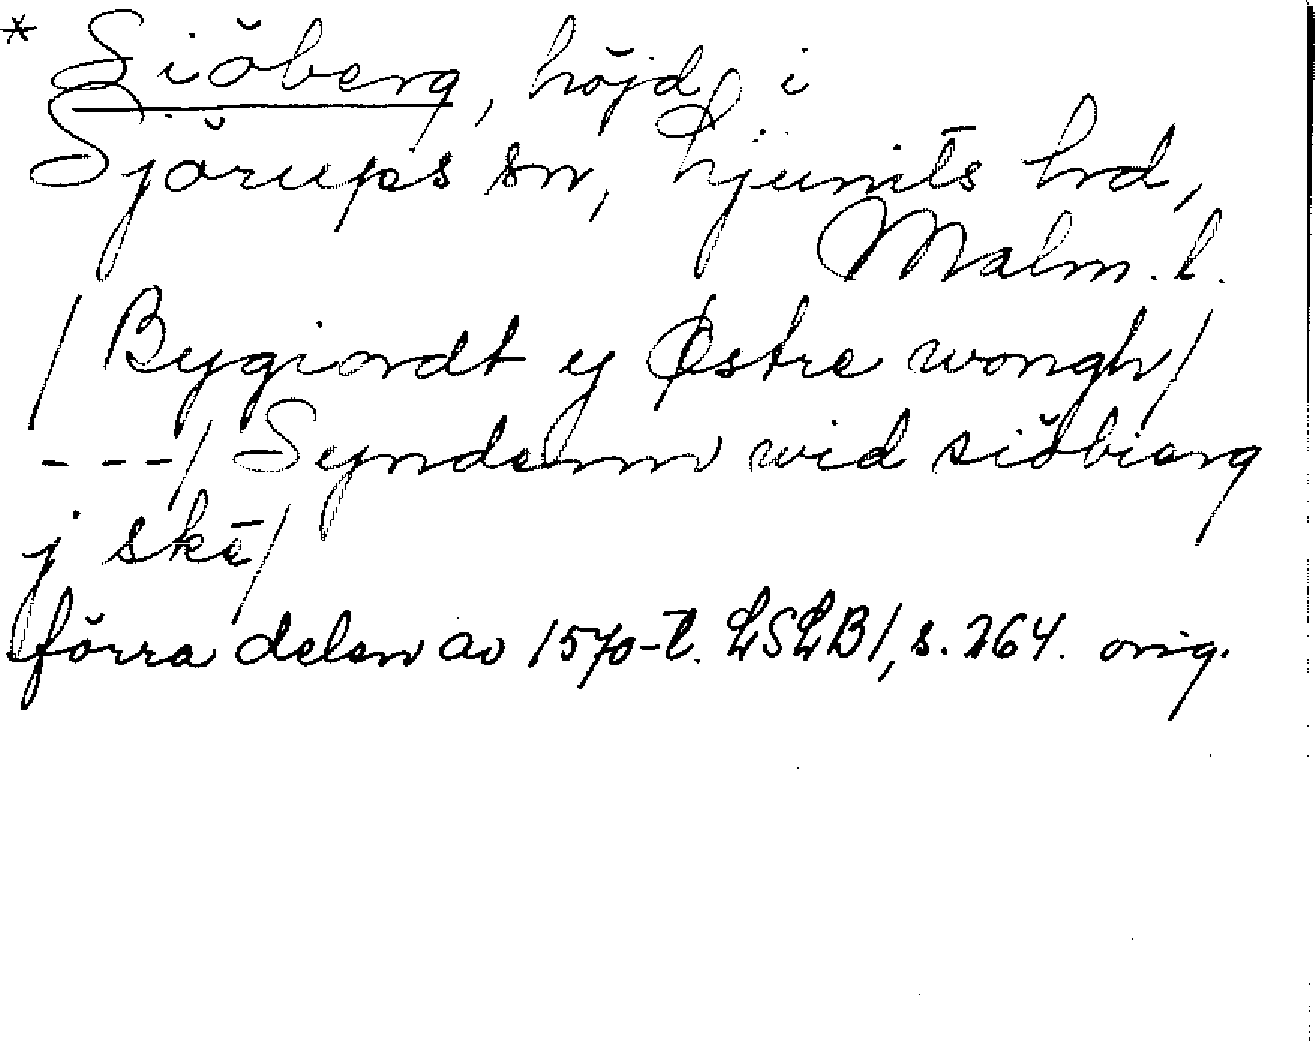 * Siöberg, höjd i
Sjörups sn, Ljunits hrd,
Malm. l.
/ Bygiordt ij Østre wongh/
---/ Syndenn wid siöbierg
j skē/
förra delen av 1570-t. LSLB1, s. 264. orig.